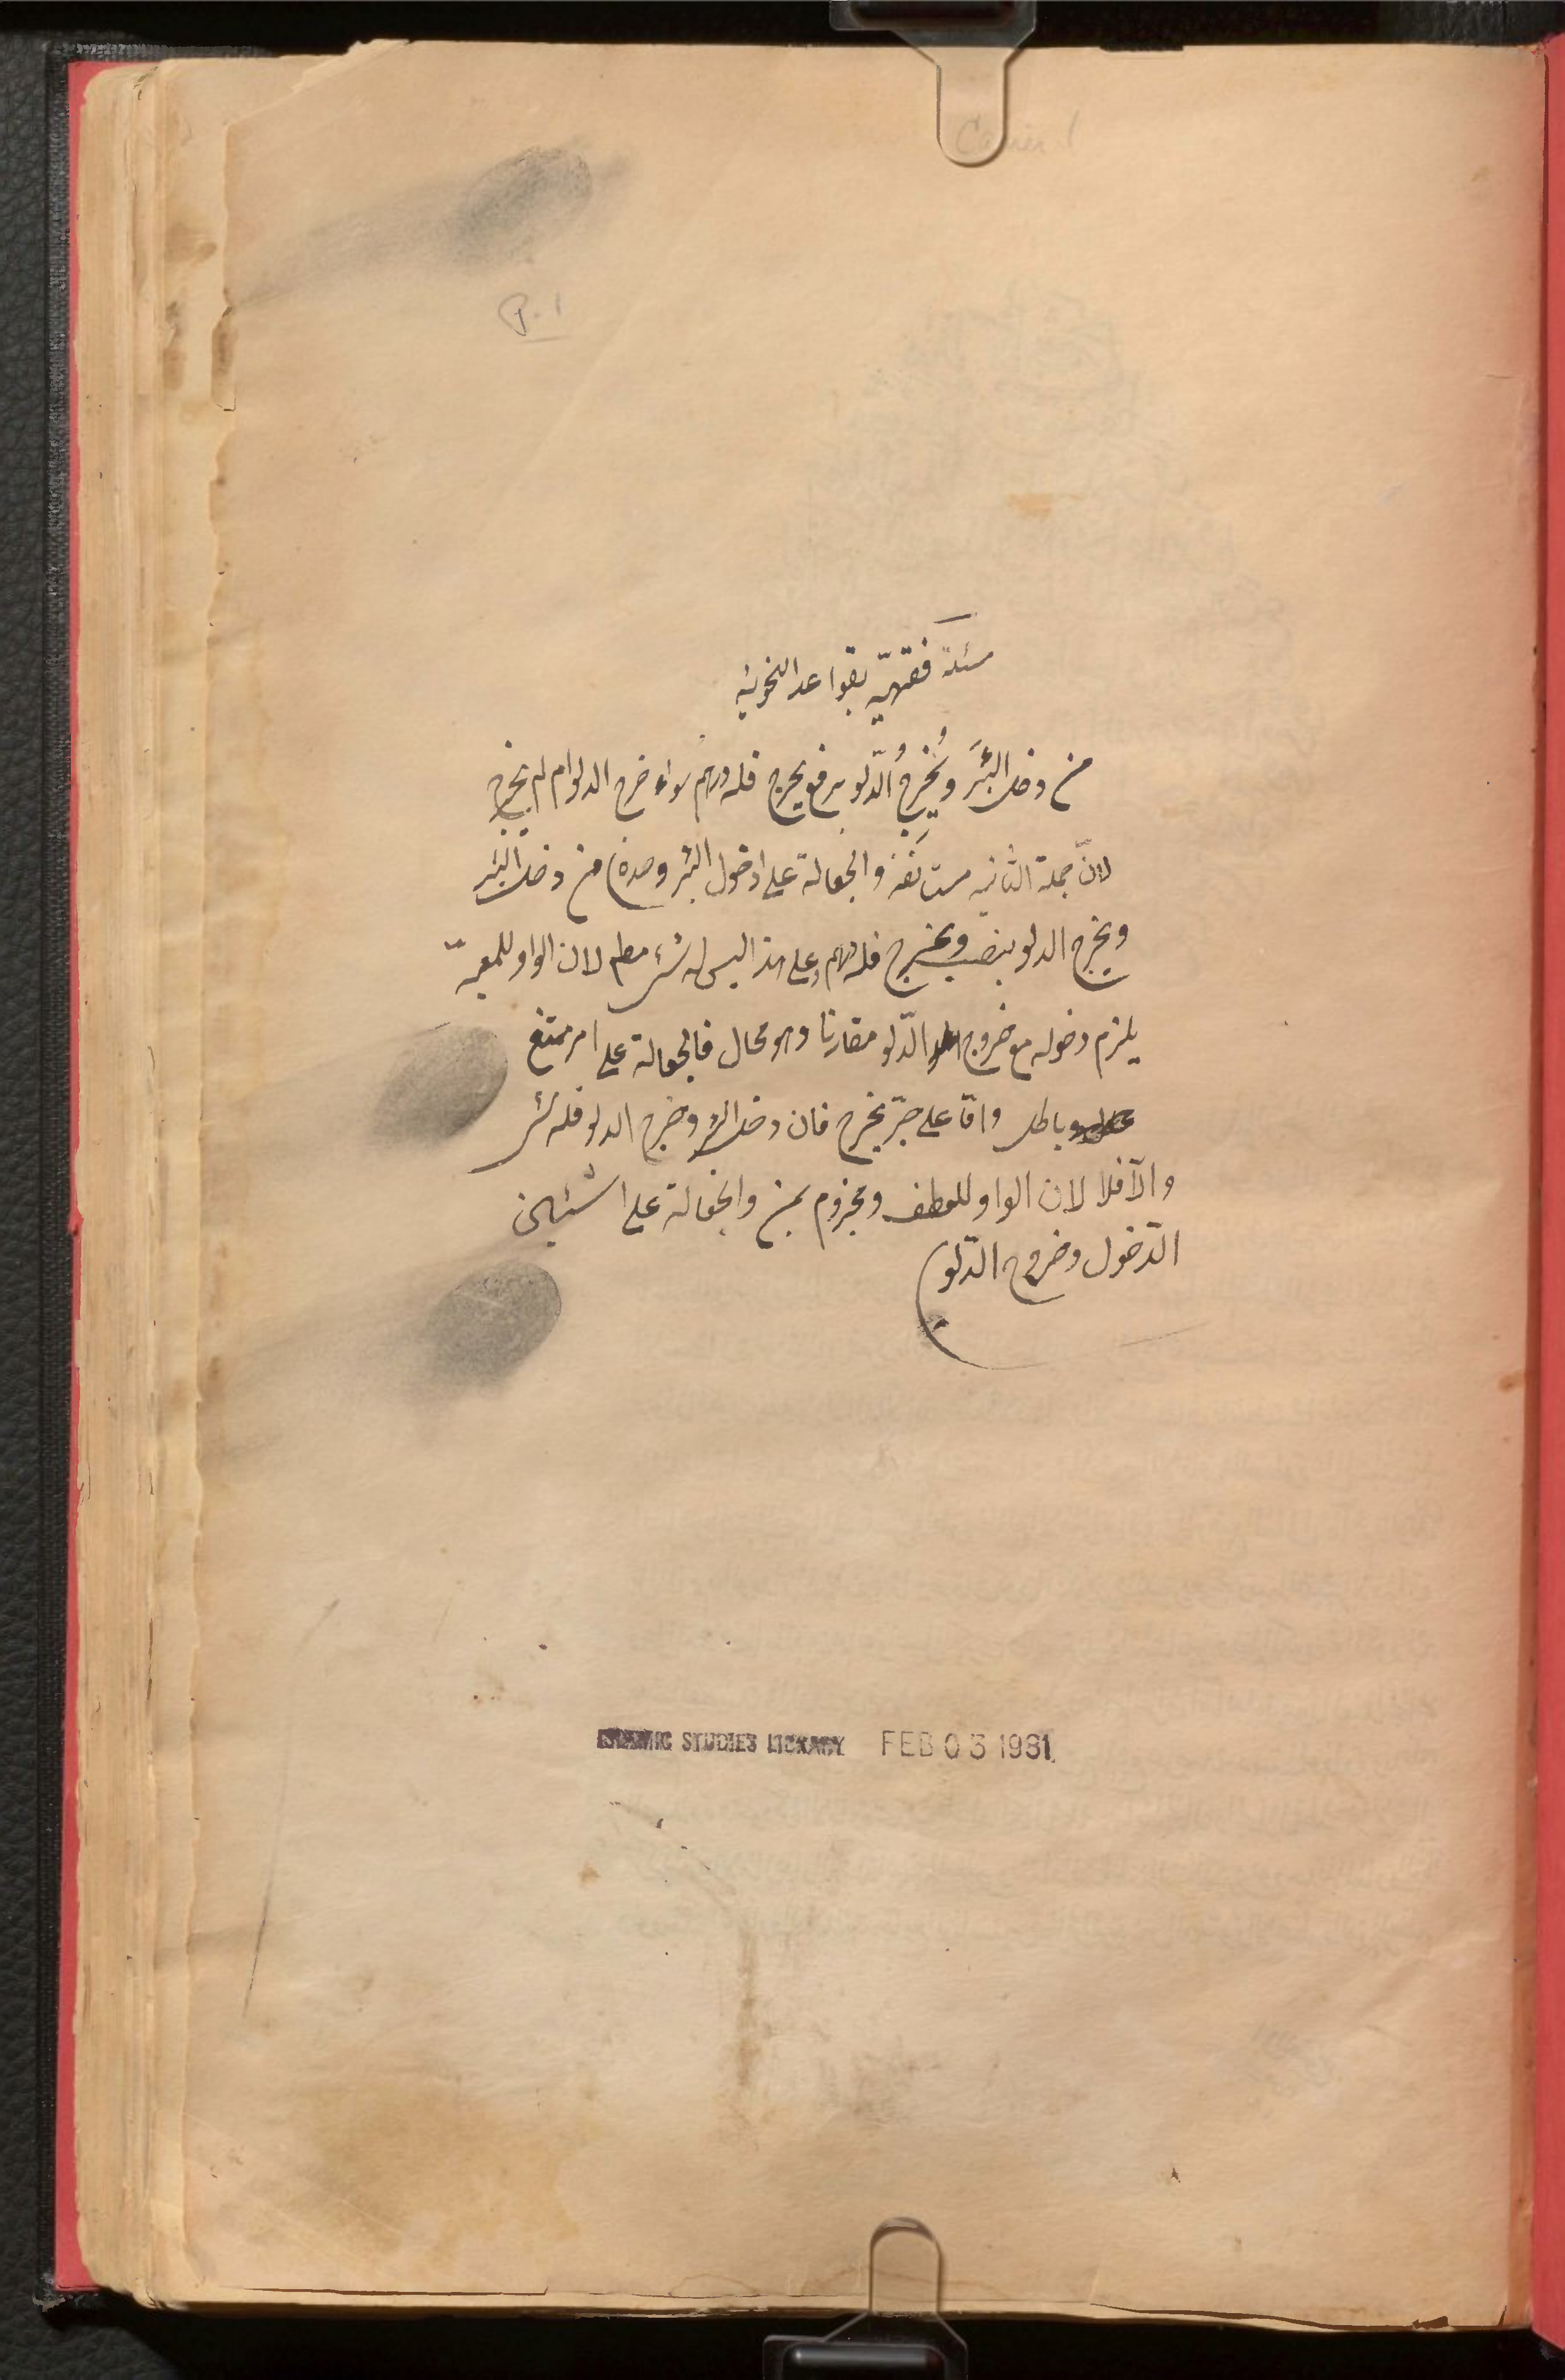 P. 1
مسئلة فقهيّه بقواعد النحويه
من دخل البئرَ ويُخرِجُ الدّلو برفع يخرج فله درهم سواء خرج الدلو ام لم يخرج
لانّ جملة الثانيه مستانفه والجعالة على ادخول البئر وحده من دخل البئر
ويخرج الدلو بنصب ويخرج فله درهم وعلى هذا ليس له شئ مطم لان الواو للمعيّة
يلزم دخوله مع خروج الدّلو مقارنا وهو محال فالجعالة على امر ممتنع
وباطل وامّا على جرّ يخرج فان دخل البئر وخرج الدلو فله شئ
والّا فلا لان الواو للعطف ومجزوم بمن والجعالة على اشيئين
الدّخول وخروج الدّلو
ISLAMIC STUDIES LIBRARY FEB 03 1981